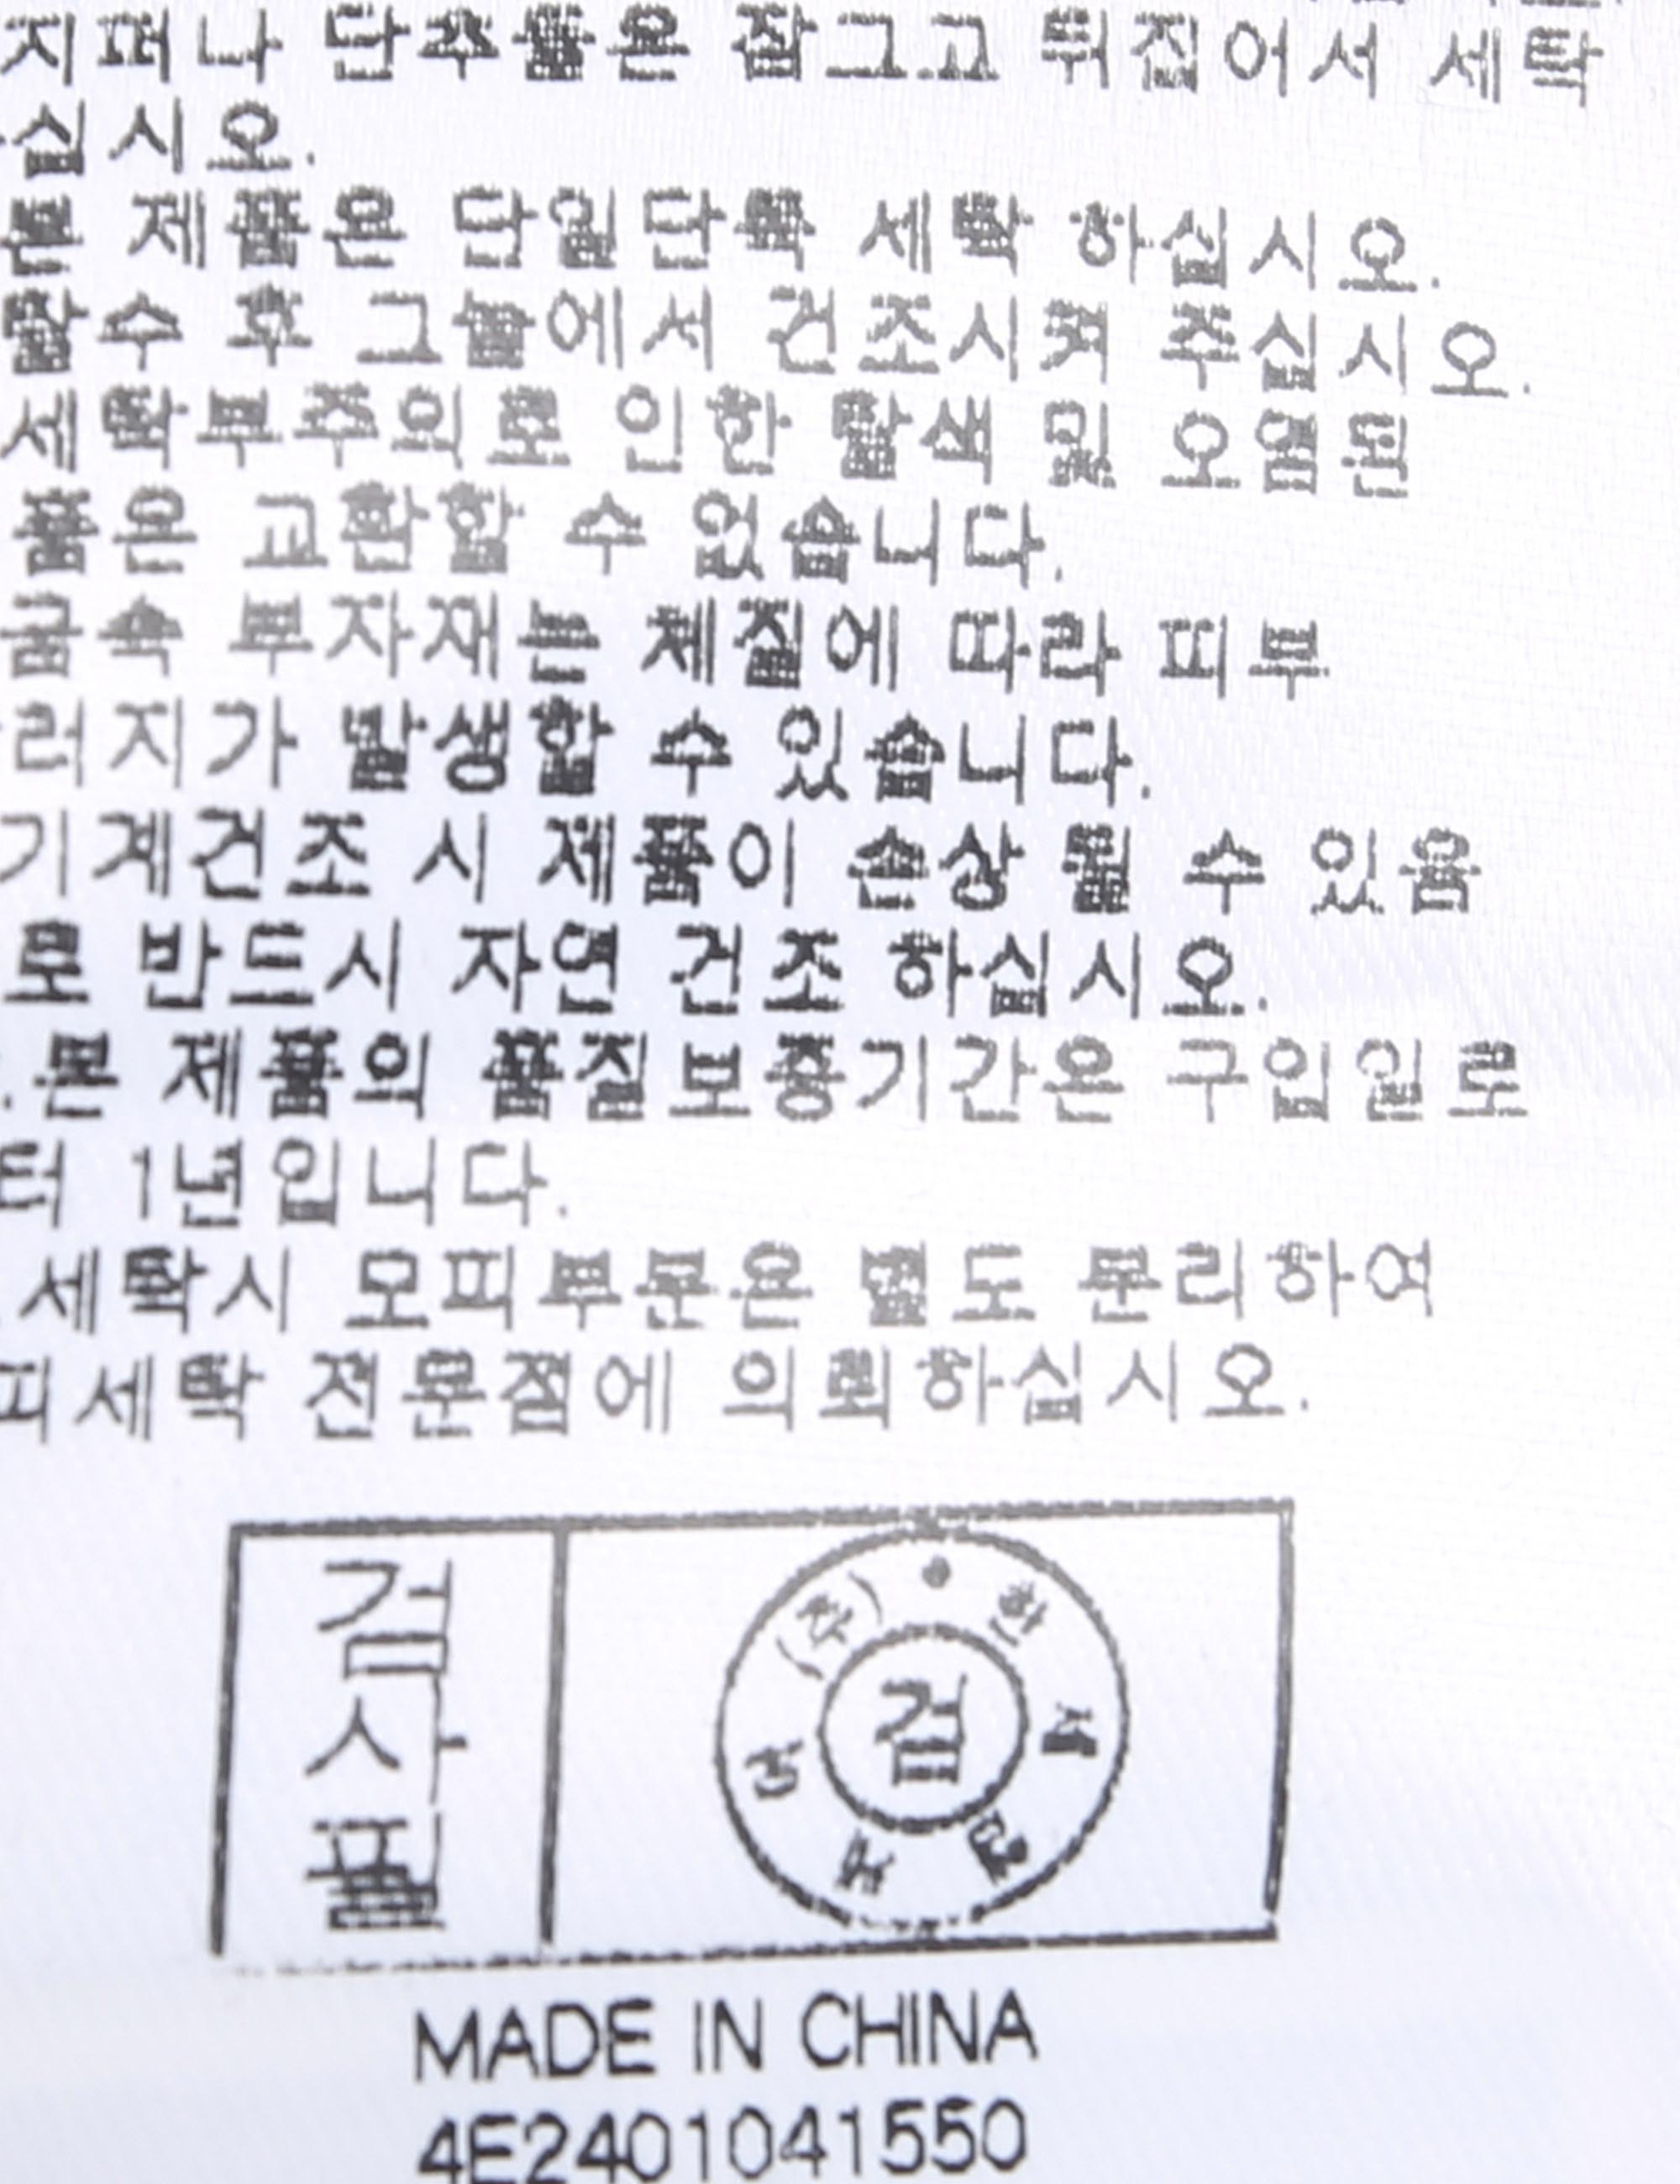 지퍼나 단추들은 잠그고 뒤집어서 세탁
십시오.
본 제품은 단일단독 세탁 하십시오.
탈수 후 그늘에서 건조시켜 주십시오.
세탁부주의로 인한 탈색 및 오염된
품은 교환할 수 없습니다.
금속 부자재는 체질에 따라 피부
러지가 발생할 수 있습니다.
기계건조 시 제품이 손상 될 수 있음
로 반드시 자연 건조 하십시오.
.본 제품의 품질보증기간은 구입일로
터 1년입니다.
세탁시 모피부분은 별도 분리하여
피세탁 전문점에 의뢰하십시오.
검사필
(주)
한세
검
MADE IN CHINA
4E2401041550